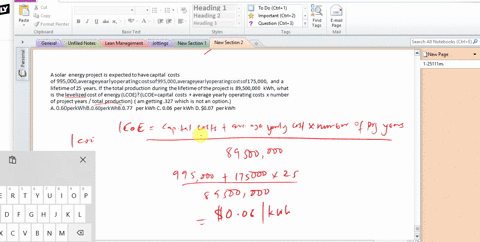 Heading 1
Heading 2
Heading 3
To Do (Ctrl+1)
Important (Ctrl+2)
Question (Ctrl+3)
E-mail
Page
General
Unfiled Notes
Lean Management
Jottings
New Section 1
New Section 2
Search All Notebooks
New Page
A solar energy project is expected to have capital costs
of 995,000,averageyearlyoperatingcostsof995,000,averageyearlyoperatingcostsof 175,000, and a
lifetime of 25 years. If the total production during the lifetime of the project is 89,500,000 kWh, what
is the levelized cost of energy (LCOE)? (LCOE=capital costs + average yearly operating costs x number
of project years / total production) ( am getting .327 which is not an option.)
A. 0.60perkWhB.0.60perkWhB.0.77 per kWh C. 0.06 per kWh D. $0.07 per kWh
LCOE = capital costs + average yearly cost x number of proj years
89500,000
LCOE
995,000 + 175000 x 25
89500,000
= $0.06/kwh
E R T Y U I O P
D F G H J K L
X C V B N M